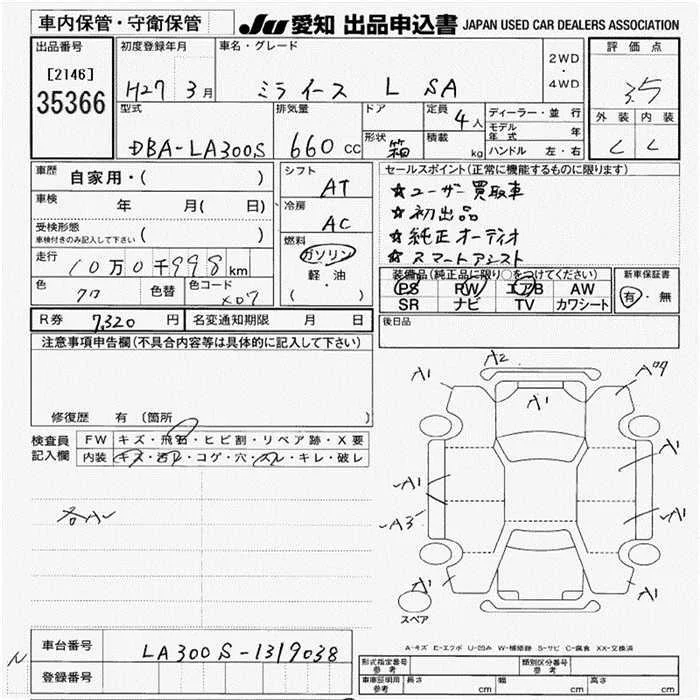 車内保管・守衛保管
JU 愛知 出品申込書 JAPAN USED CAR DEALERS ASSOCIATION
出品番号
[2146]
35366
初度登録年月
H27 3月
車名・グレード
ミライース L SA
2WD
・
4WD
評価点
3.5
外装 内装
C C
型式
DBA-LA300S
排気量
660 CC
ドア
形状
箱
定員
4人
積載
kg
ディーラー・並行
モデル年式 年
ハンドル 左・右
車歴
自家用・( )
車検
年 月( 日)
受検形態
車検付きのみ記入して下さい ( )
走行
10万0千998km
色
クロ
色替
色コード
X07
シフト
AT
冷房
AC
燃料
ガソリン
軽・油
( ・ )
セールスポイント(正常に機能するものに限ります)
☆ユーザー買取車
☆初出品
☆純正オーディオ
☆スマートアシスト
装備品(純正品に限り○をつけてください)
PS PW エアB AW
SR ナビ TV カワシート
新車保証書
有・無
R券 7,320 円
名変通知期限 月 日
後日品
注意事項申告欄(不具合内容等は具体的に記入して下さい)
修復歴 有 〔箇所 〕
検査員
記入欄
FW キズ・飛石・ヒビ割・リペア跡・X要
内装 キズ・汚レ・コゲ・穴・スレ・キレ・破レ
A1
A2
A1
A1
A1
A3
A1
A1
A1
スペア
A-キズ E-エクボ U-凹み W-補修跡 S-サビ C-腐食 XX-交換済
車台番号
LA300S-1319038
登録番号
形式指定番号
参考
類別区分番号
参考
車庫証明用
参考
長さ cm
幅 cm
高さ cm